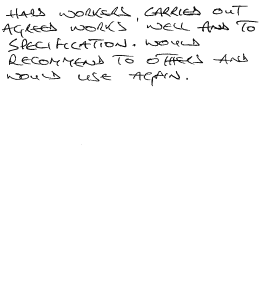 HARD WORKERS, CARRIED OUT
AGREED WORKS WELL AND TO
SPECIFICATION. WOULD
RECOMMEND TO OTHERS AND
WOULD USE AGAIN.